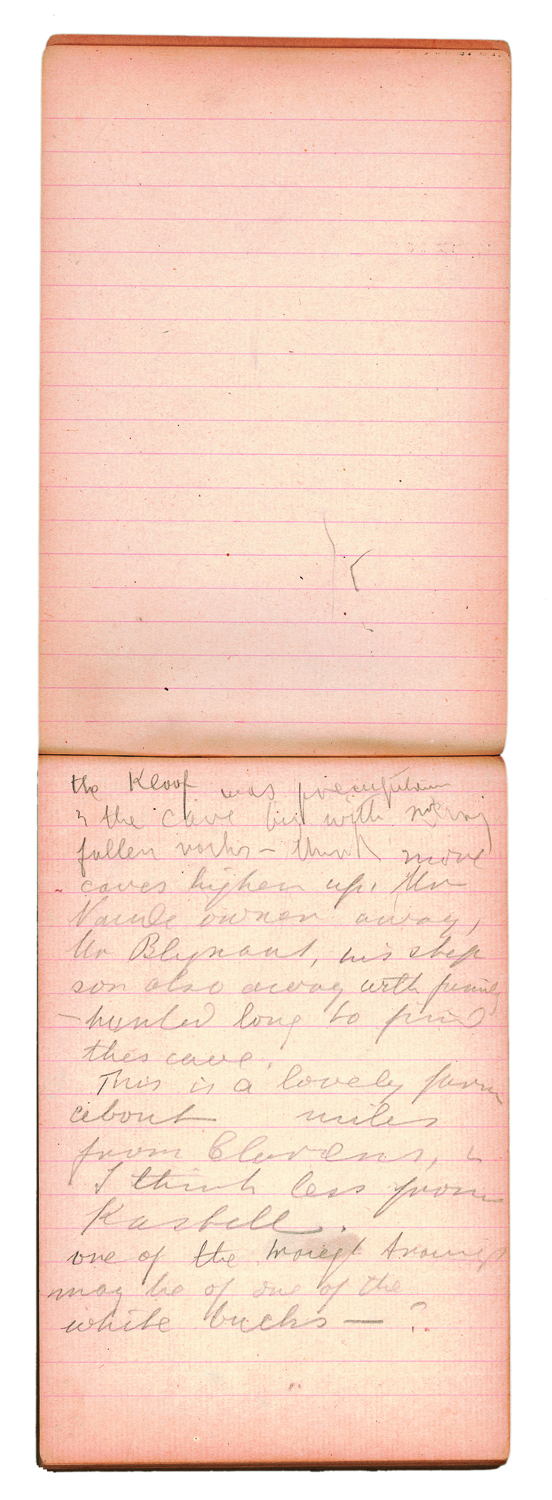 the Kloof was precipitous
& the cave big with many
fallen rocks – think more
caves higher up. Mr
Naude owner away,
Mr Blignaut, his step
son also away with family
– hunted long to find
this cave.
This is a lovely farm
about miles
from Clarens, &
I think less from
Kasbell.
one of the
may be of one of the
white bucks — ?